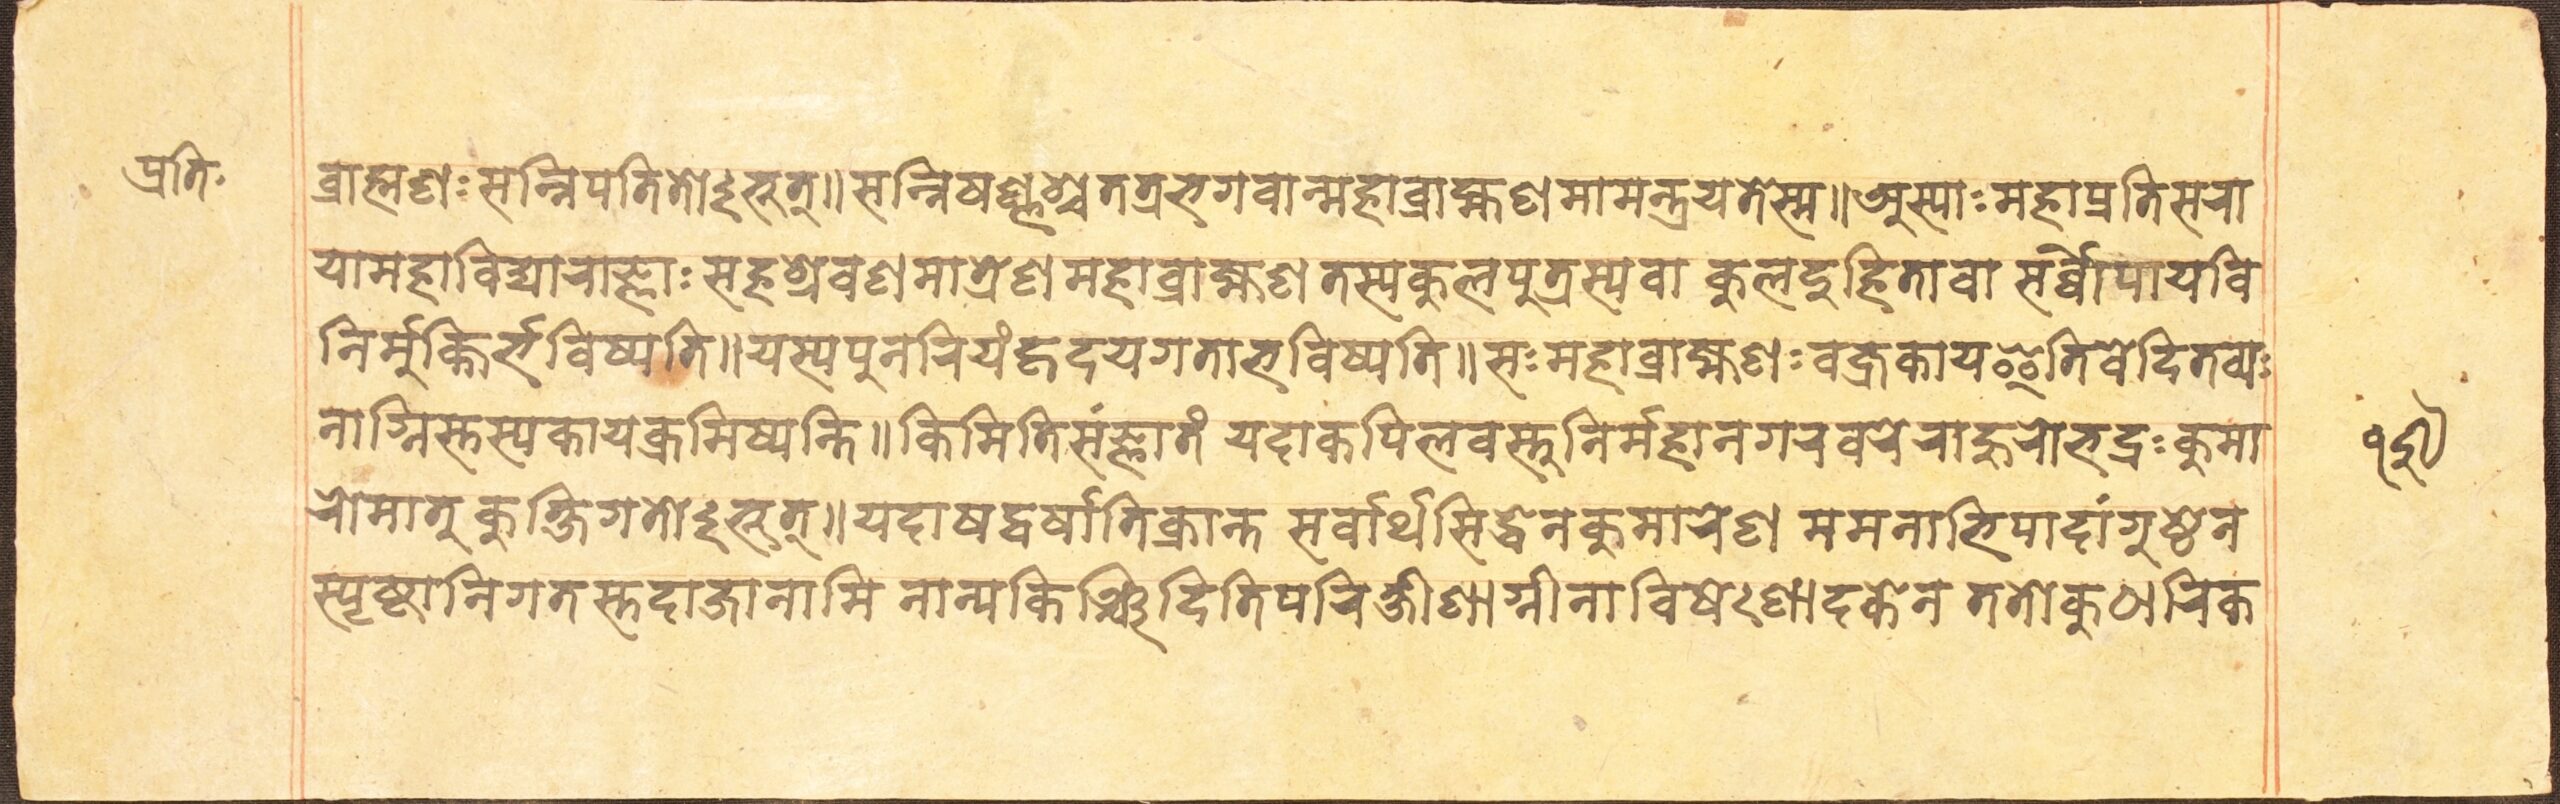 प्रति·
ब्राह्मणः सन्निपतितोऽभूत्॥ सन्निषण्णश्च तत्र भगवान्महाब्राह्मणमामन्त्रयतेस्म॥ अस्याः महाप्रतिसरा
या महाविद्याराज्ञाः सहश्रेवणमात्रेण महाब्राह्मण तस्य कुलपुत्रस्य वा कुलदुहितावा सर्व्वोपायवि
निर्मुक्तिर्भविष्यति॥ यस्य पुनरियं हृदयगता भविष्यति॥ सः महाब्राह्मणः वज्रकाय इति वेदितव्यः
नाग्निस्तस्य काय क्रमिष्यन्ति॥ किमिति संज्ञातं यदा कपिलवस्तुनिर्महानगरवरे राहुरोभद्रः कुमा
रो मातु कुक्षिगतोऽभूत्॥ यदा षद्वर्षातिक्रान्त सर्वार्थसिद्धेन कुमारेण मम नाभि पादांगुष्ठेन
स्पृष्टानिगतस्तदा जानामि नान्यकिञ्चिदिति परिक्षीणाग्नीना विषेरणादकेन ततो कुठारिक